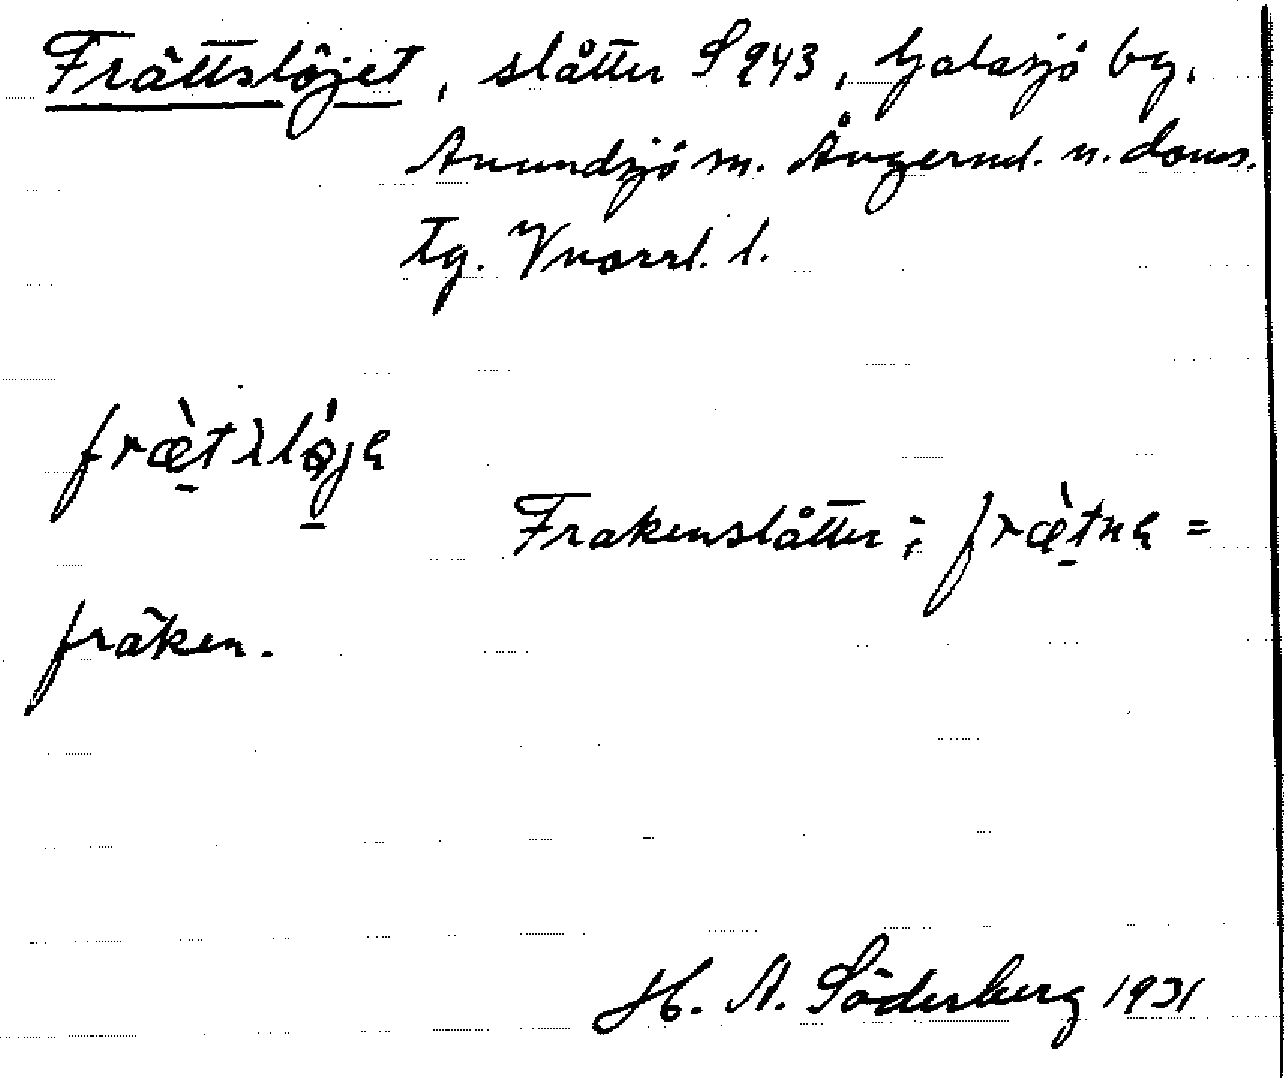 Frättslöjet, slåtter S 943, Galasjö by.
Anundsjö sn. Ångerml. n. doms.
tg. Vnorrl. l.
fræ̀t
Frakenslåtter; fræ̀tnɐ =
fräken.
H. A. Söderberg 1931